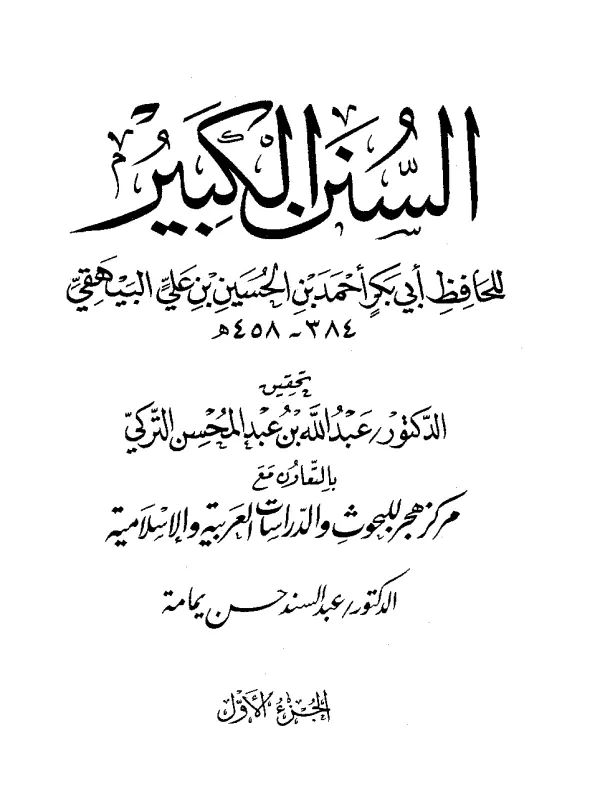 السُّنَنُ الْكَبِيرُ
لِلْحَافِظِ أَبِي بَكْرٍ أَحْمَدَ بْنِ الْحُسَيْنِ بْنِ عَلِيٍّ الْبَيْهَقِيِّ
٣٨٤ - ٤٥٨ هـ
تحقيق
الدكتور / عَبْدُ اللَّه بْنُ عَبْدِ الْمُحْسِنِ التُّرْكِيّ
بالتعاون مع
مركز هجر للبحوث والدراسات العربية والإسلامية
الدكتور / عبد السند حسن يمامة
الجزءُ الأوّل